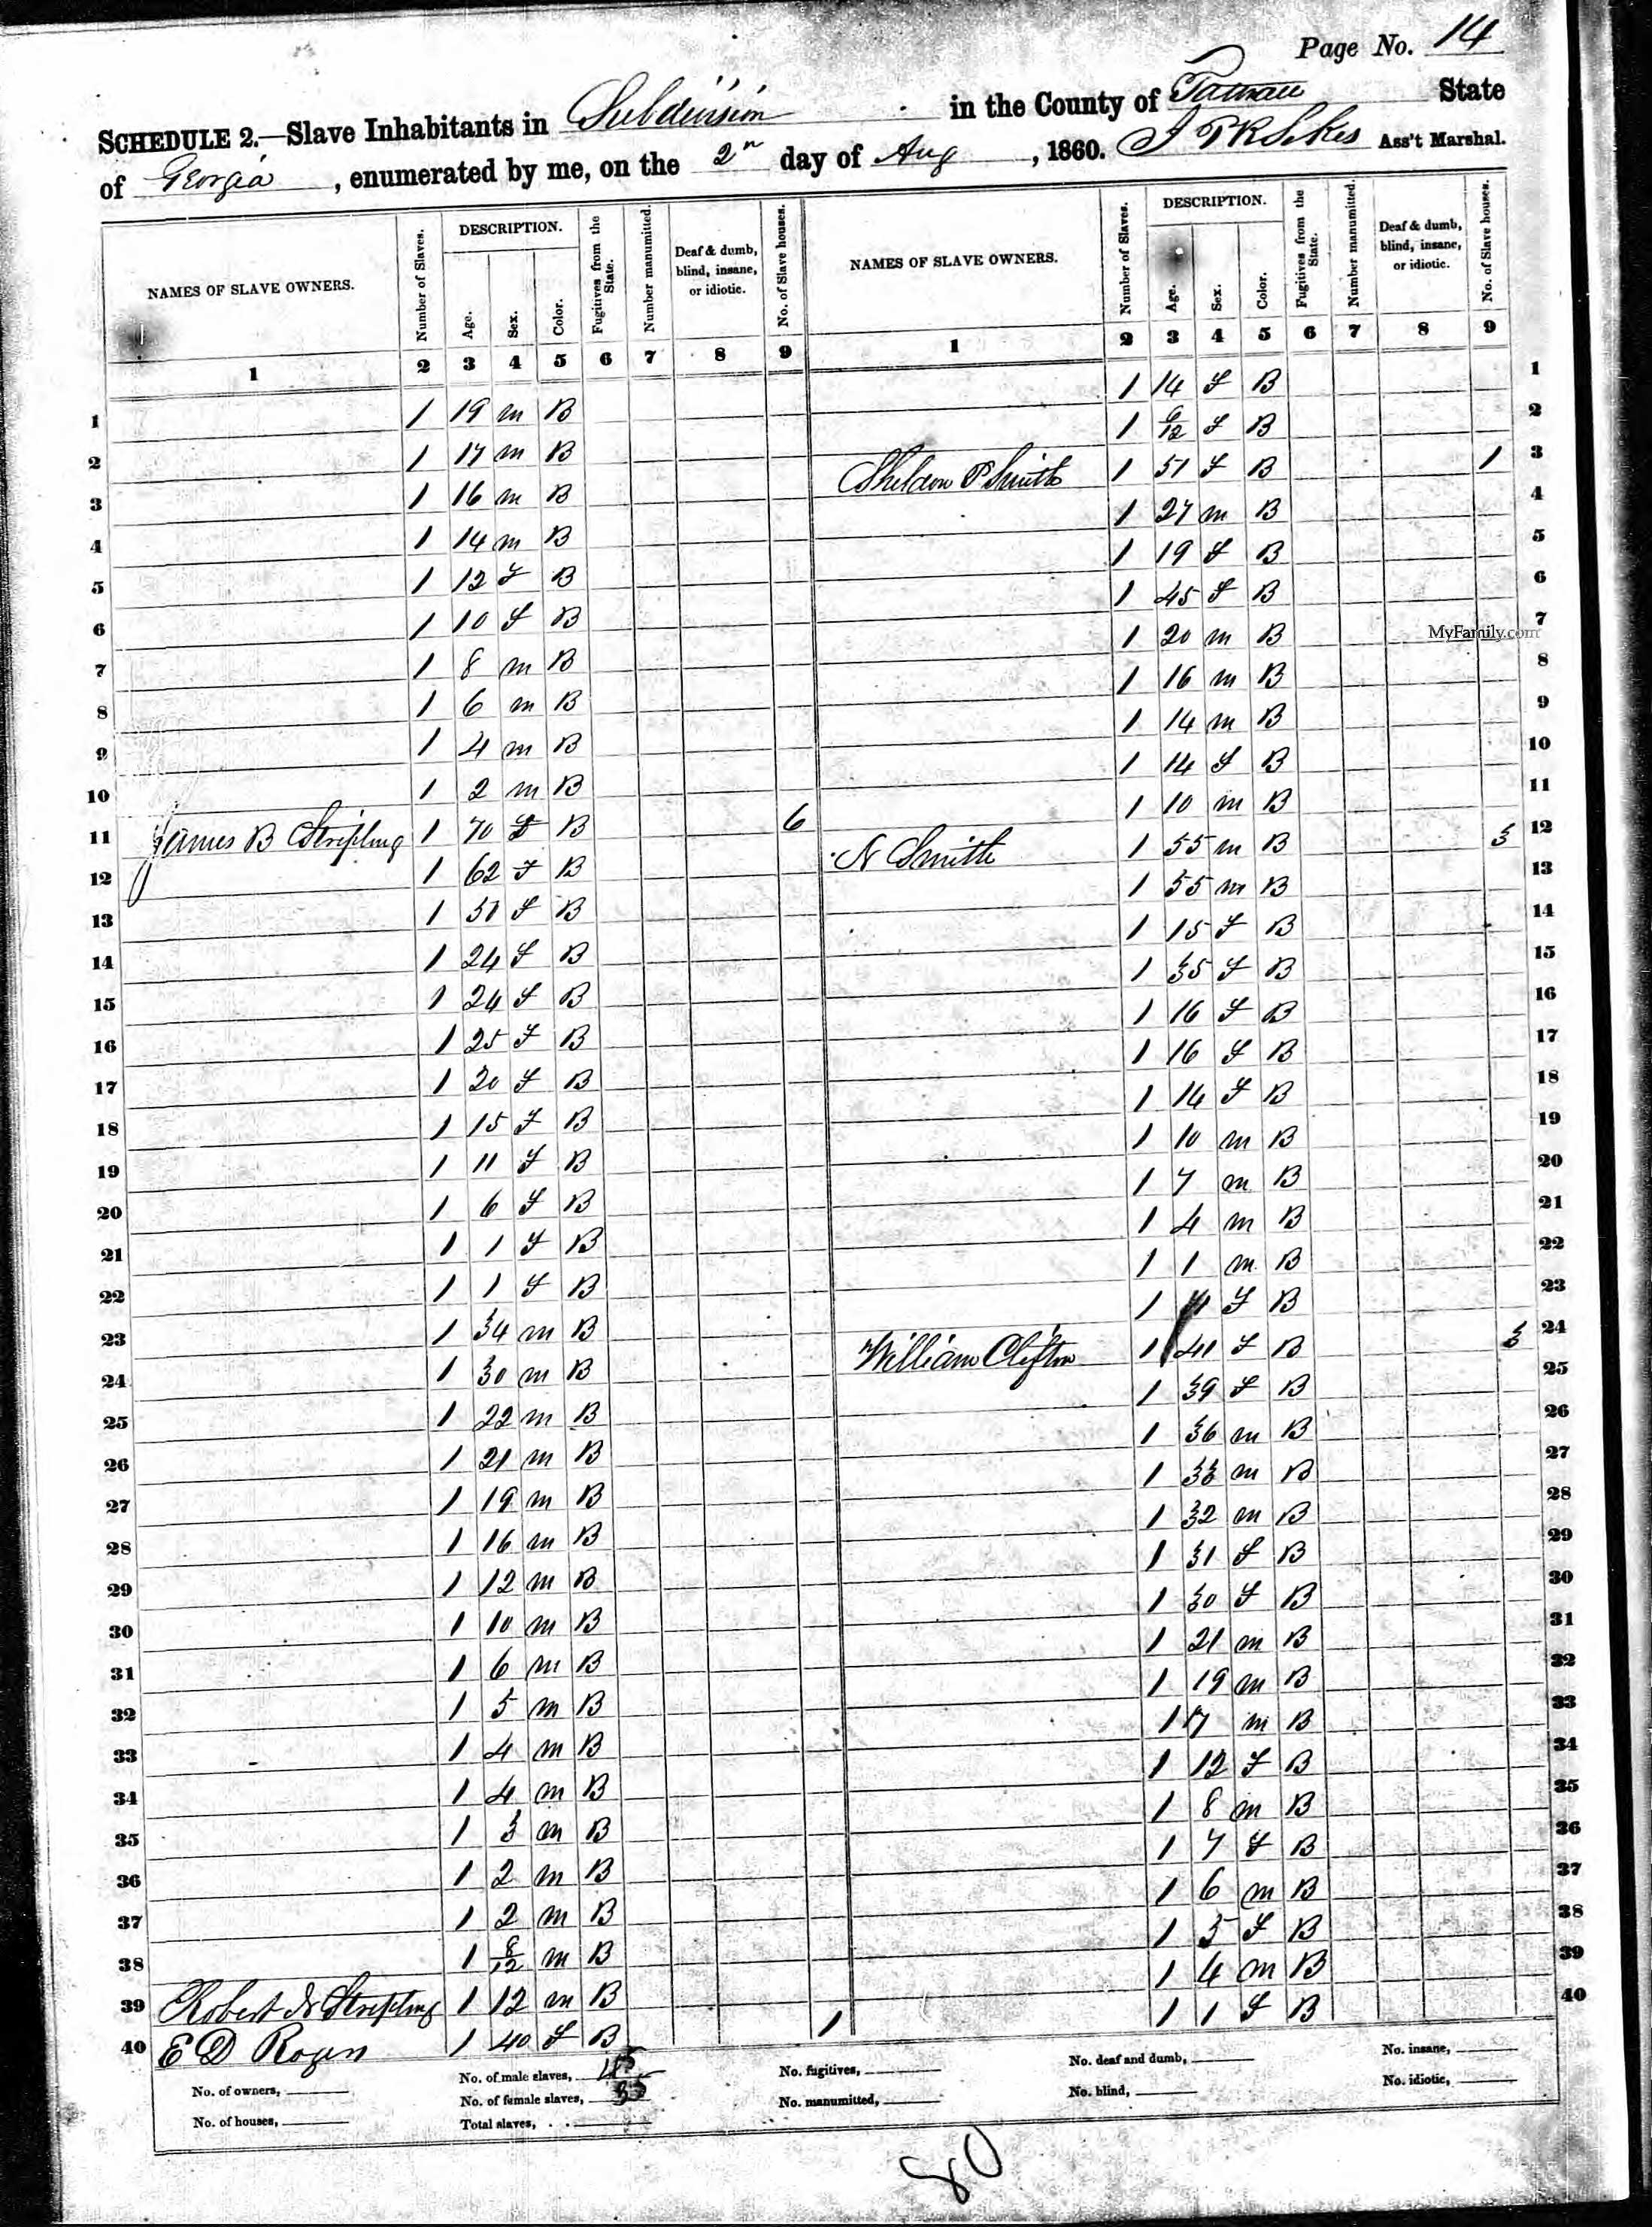 Page No. 14
SCHEDULE 2.—Slave Inhabitants in Subdivision in the County of State
of Georgia, enumerated by me, on the 2n day of Aug, 1860. Sikes Ass't Marshal.
NAMES OF SLAVE OWNERS. Number of Slaves. DESCRIPTION. Age. Sex. Color. Fugitives from the State. Number manumitted. Deaf & dumb, blind, insane, or idiotic. No. of Slave houses.
1 2 3 4 5 6 7 8 9
1 1 19 m B
2 1 17 m B
3 1 16 m B
4 1 14 m B
5 1 12 f B
6 1 10 f B
7 1 8 m B
8 1 6 m B
9 1 4 m B
10 1 2 m B
11 James B Stripling 1 70 f B 6
12 1 62 f B
13 1 f B
14 1 24 f B
15 1 24 f B
16 1 25 f B
17 1 20 f B
18 1 15 f B
19 1 11 f B
20 1 6 f B
21 1 1 f B
22 1 1 f B
23 1 34 m B
24 1 30 m B
25 1 22 m B
26 1 21 m B
27 1 19 m B
28 1 16 m B
29 1 12 m B
30 1 10 m B
31 1 6 m B
32 1 5 m B
33 1 4 m B
34 1 4 m B
35 1 3 m B
36 1 2 m B
37 1 2 m B
38 1 8/12 m B
39 Robert Stripling 1 12 m B
40 E D Rogers 1 40 f B
NAMES OF SLAVE OWNERS. Number of Slaves. DESCRIPTION. Age. Sex. Color. Fugitives from the State. Number manumitted. Deaf & dumb, blind, insane, or idiotic. No. of Slave houses.
1 2 3 4 5 6 7 8 9
1 14 f B 1
1 6/12 f B 2
Sheldon P Smith 1 51 f B 1 3
1 27 m B 4
1 19 f B 5
1 45 f B 6
1 20 m B 7
MyFamily.com
1 16 m B 8
1 14 m B 9
1 14 f B 10
1 10 m B 11
N Smith 1 55 m B 3 12
1 55 m B 13
1 15 f B 14
1 35 f B 15
1 16 f B 16
1 16 f B 17
1 14 f B 18
1 10 m B 19
1 7 m B 20
1 4 m B 21
1 1 m B 22
1 f B 23
William Clifton 1 41 f B 3 24
1 39 f B 25
1 36 m B 26
1 33 m B 27
1 32 m B 28
1 31 f B 29
1 30 f B 30
1 21 m B 31
1 19 m B 32
1 17 m B 33
1 12 f B 34
1 8 m B 35
1 7 f B 36
1 6 m B 37
1 5 f B 38
1 4 m B 39
1 1 1 f B 40
No. of owners, No. of male slaves, 45 No. fugitives, No. deaf and dumb, No. insane,
No. of houses, No. of female slaves, 35 No. manumitted, No. blind, No. idiotic,
Total slaves,
80